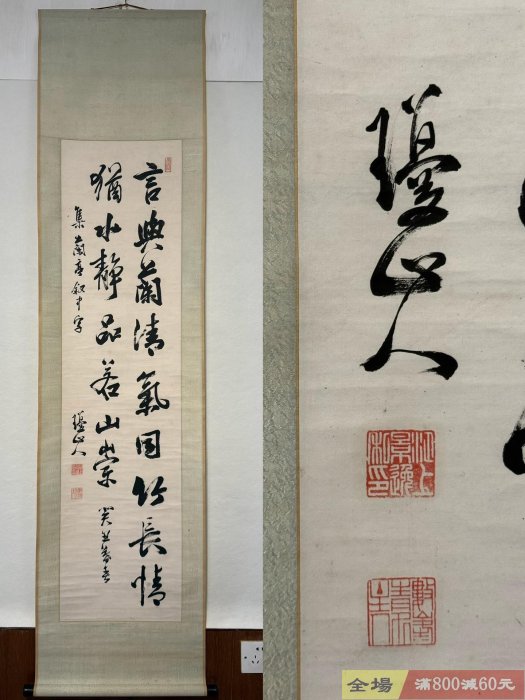 言與蘭清氣同竹長情
猶水靜品若山崇 癸丑暮春
集蘭亭叙中字
山人
山人
全場 滿800減60元